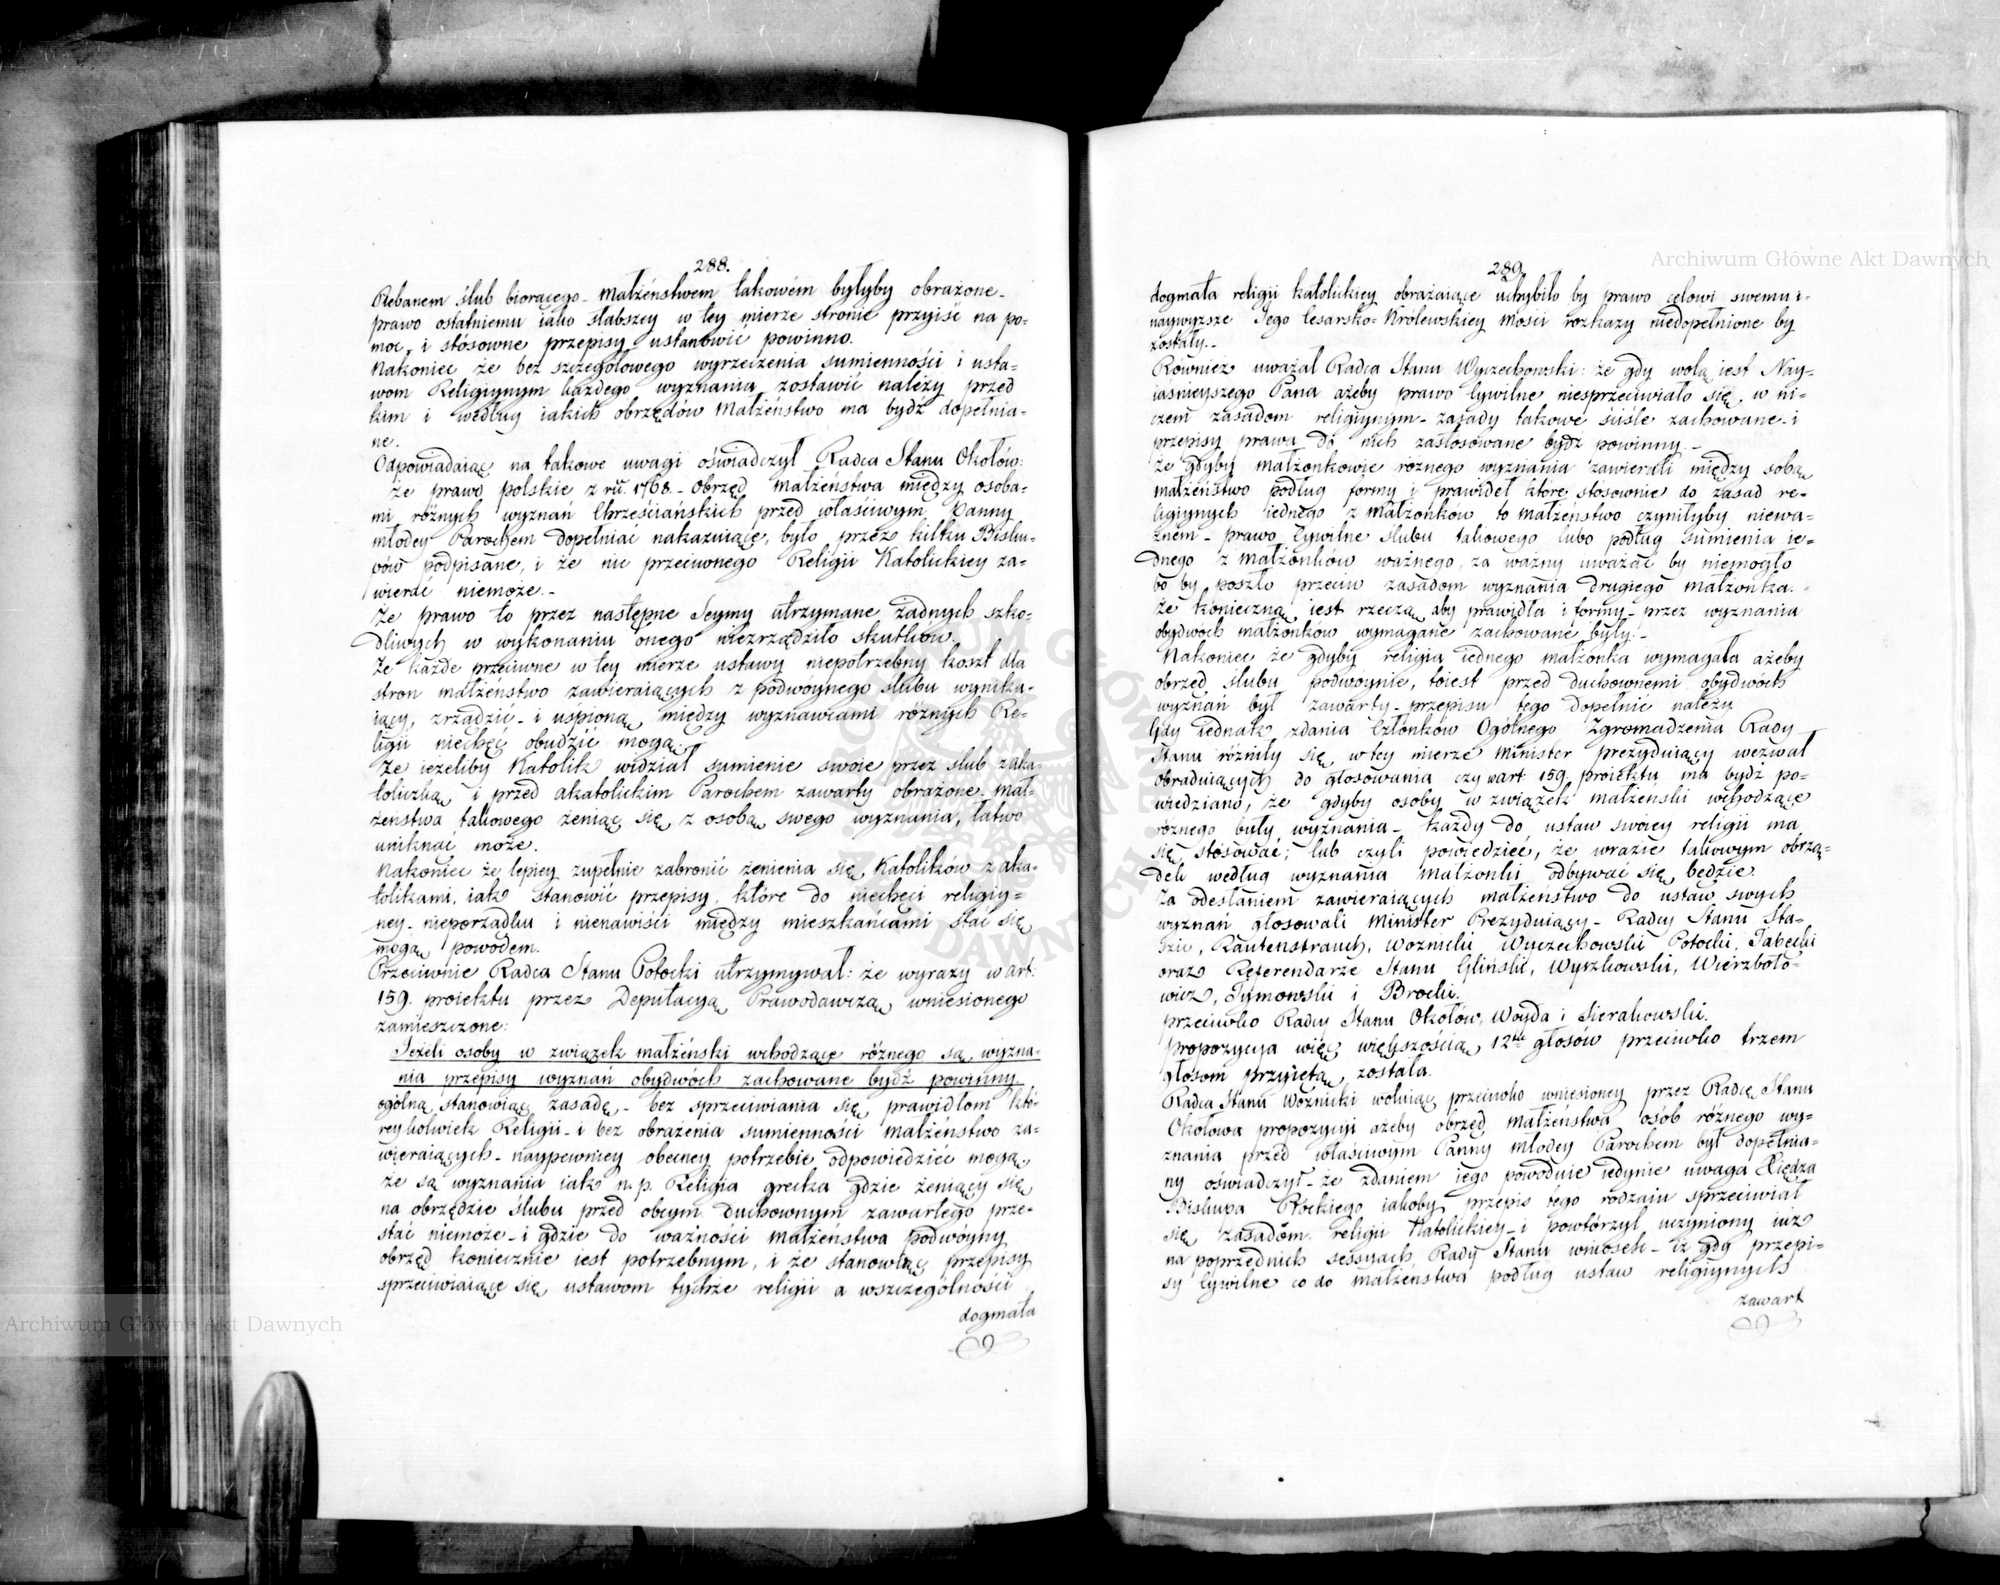 288.
Plebanem ślub biorącego. Małżeństwem takowém byłyby obrażone.
prawo ostatniemu iako słabszey w tey mierze stronie przyiść na po-
moc, i stósowne przepisy ustanowić powinno.
Nakoniec że bez szczególowego wyrzeczenia sumienności i usta-
wom Religiynym każdego wyznania zostawić należy przed
kim i według iakich obrzędów Małżeństwo ma bydź dopełnia-
ne.
Odpowiadaiąc na takowe uwagi oświadczył Radca Stanu Okołów:
że prawo polskie z ru. 1768. Obrzęd małżeństwa między osoba-
mi różnych wyznań Chrześciańskich przed właściwym Panny
młodey Parochem dopełniać nakazuiące, było przez kilku Bisku-
pów podpisane, i że nic przeciwnego Religii Katolickiey za-
wierać niemoże.-
Że prawo to przez następne Seymy utrzymane żadnych szko-
dliwych w wykonaniu onego niezrządziło skutków.
Że każde przeciwne w tey mierze ustawy niepotrzebny koszt dla
stron małżeństwo zawieraiących z podwoynego ślubu wynika-
iący, zrządzić- i uśpioną między wyznawcami różnych Re-
ligii niechęć obudzić mogą.
Że ieżeliby Katolik widział sumienie swoie przez slub z aka-
toliczką i przed akatolickim Parochem zawarty obrażone. Mał-
żeństwa takowego żeniąc się z osobą swego wyznania, łatwo
uniknąć może.
Nakoniec że lepiey zupełnie zabronić żenienia się Katolików z aka-
tolikami, iak Stanowić przepisy, które do niechęci religiy-
ney- nieporządku i nienawiści między mieszkańcami stać się
mogą powodem.
Przeciwnie Radca Stanu Potocki utrzymywał: że wyrazy w art:
159. proiektu przez Deputacyą Prawodawczą wniesionego
zamieszczone:
Jeżeli osoby w związek małżeński wchodzące różnego są wyzna-
nia przepisy wyznań obydwóch zachowane bydź powinny
ogólną stanowiąc zasadę- bez sprzeciwiania się prawidłom któ-
reykolwiek Religii- i bez obrażenia sumienności małżeństwo za-
wieraiących- naypewniey obecney potrzebie odpowiedzieć mogą,
że są wyznania iak n.p. Religia grecka gdzie żeniący się
na obrzędzie ślubu przed obcym duchownym zawartego prze-
stać niemoże- i gdzie do ważności małżeństwa podwóyny
obrzęd koniecznie iest potrzebnym, i że stanowiąc przepisy
sprzeciwiaiące się ustawom tychże religii a wszczególności
dogmata
289.
dogmata religii katolickiey obrażaiące uchybiło by prawo celowi swemu i-
naywyższe Jego Cesarsko-Królewskiey Mości rozkazy niedopełnione by
zostały.-
Również uważał Radca Stanu Wyczechowski: że gdy wolą iest Nay-
iaśnieyszego Pana ażeby prawo Cywilne niesprzeciwiało się w ni-
czem zasadom religiynym- zasady takowe ściśle zachowane i
przepisy prawa do nich zastósowane bydź powinny.-
że gdyby małżonkowie różnego wyznania zawierali między sobą
małżeństwo podług formy i prawideł które stósownie do zasad re-
ligiynych iednego z małżonków to małżeństwo czyniłyby niewa-
żnem- prawo Cywilne ślubu takowego lubo podług sumienia ie-
dnego z małżonków ważnego, za ważny uważać by niemogło
bo by poszło przeciw zasadom wyznania drugiego małżonka.
że konieczną iest rzeczą aby prawidła i formy- przez wyznania
obydwóch małżonków wymagane zachowane były.-
Nakoniec że gdyby religia iednego małżonka wymagała ażeby
obrzęd ślubu podwoynie, toiest przed duchownemi obydwóch
wyznań był zawarty- przepisu tego dopełnić należy
Gdy iednak zdania Członków Ogólnego Zgromadzenia Rady
Stanu różniły się w tey mierze Minister prezyduiący wezwał
obraduiących do głosowania czy w art 159. proiektu ma bydź po-
wiedziano, że gdyby osoby w związek małżeński wchodzące
różnego były wyznania- każdy do ustaw swoiey religii ma
się stósować; lub czyli powiedzieć, że wrazie takowym obrzą-
dek według wyznania małżonki odbywać się będzie.
Za odesłaniem zawieraiących małżeństwo do ustaw swych
wyznań głosowali Minister Prezyduiący- Radcy Stanu Sta-
szic, Rautenstrauch, Woźnicki Wyczechowski Potocki, Tabecki
oraz Referendarze Stanu Gliński, Wyszkowski, Wierzboło-
wicz, Tymowski i Brocki.
przeciwko Radcy Stanu Okołów, Woyda i Sierakowski.
Propozycya więc większością 12tu głosów przeciwko trzem
głosom przyiętą została.
Radca Stanu Woźnicki wotuiąc przeciwko wniesioney przez Radcę Stanu
Okołowa propozycyi ażeby obrzęd małżeństwa osób różnego wy-
znania przed właściwym Panny młodey Parochem był dopełnia-
ny oświadczył- że zdaniem iego powoduie iedynie uwaga Xiędza
Biskupa Płockiego iakoby przepis tego rodzaiu sprzeciwiał
się zasadom religii Katolickiey- i powtórzył uczyniony iuż
na poprzednich sessyach Rady Stanu wniosek- iż gdy przepi-
sy Cywilne co do małżeństwa podług ustaw religiynych
zawart
Archiwum Główne Akt Dawnych
Archiwum Główne Akt Dawnych